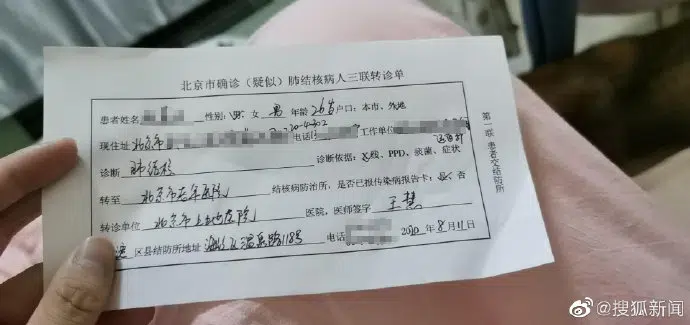 北京市确诊（疑似）肺结核病人三联转诊单
患者姓名 性别：男、女 男 年龄 26岁 户口：本市、外地
现住址 北京市 电话 工作单位
诊断 肺结核 诊断依据：X线、PPD、痰菌、症状
转至 北京市老年医院 结核病防治所，是否已报传染病报告卡：是、否
转诊单位 北京市上地医院 医院，医师签字 王慧
区县结防所地址 海淀区温泉路118号 电话 2020年8月11日
第一联 患者交结防所
@搜狐新闻